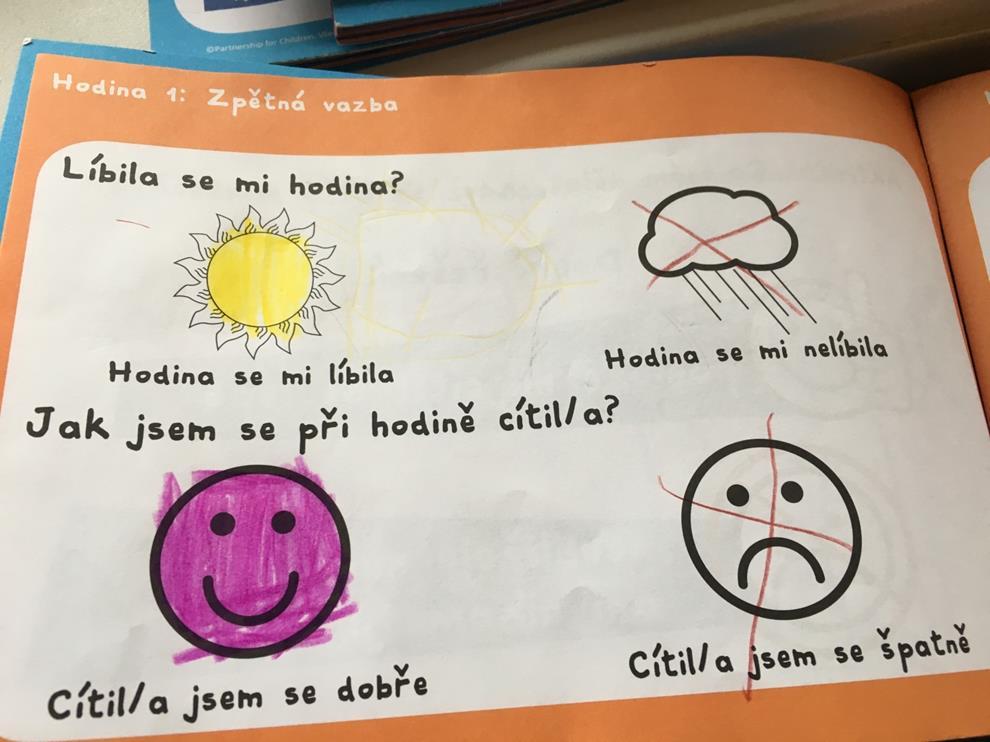 ©Partnership for Children,
Hodina 1: Zpětná vazba
Líbila se mi hodina?
Hodina se mi líbila
Hodina se mi nelíbila
Jak jsem se při hodině cítil/a?
Cítil/a jsem se dobře
Cítil/a jsem se špatně